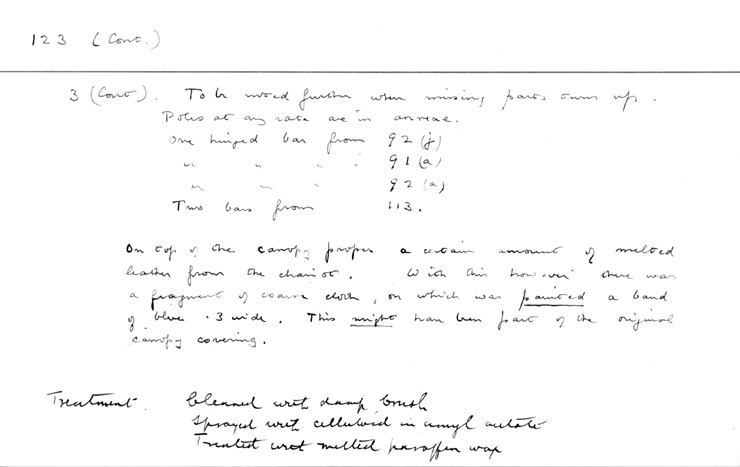 123 (Cont.)
3 (Cont). To be noted further when missing parts turn up.
Poles at any rate are in annexe.
One hinged bar from 92 (j)
" " " " 91 (a)
" " " 92 (a)
Two bars from 113.
On top of the canopy proper a certain amount of melted
leather from the chariot. With this however there was
a fragment of coarse cloth, on which was painted a band
of blue .3 wide. This might have been part of the original
canopy covering.
Treatment. Cleaned with damp brush
Sprayed with celluloid in amyl acetate
Treated with melted paraffin wax